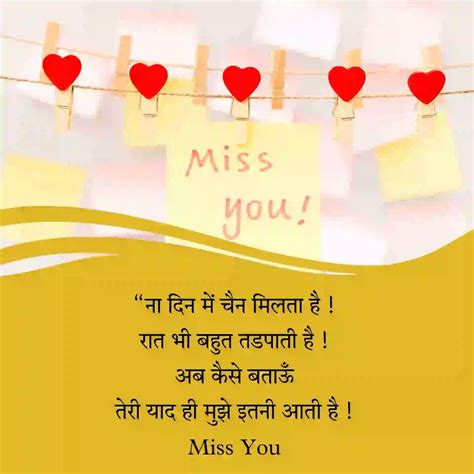 Miss
you!
“ना दिन में चैन मिलता है !
रात भी बहुत तडपाती है !
अब कैसे बताऊँ
तेरी याद ही मुझे इतनी आती है !
Miss You